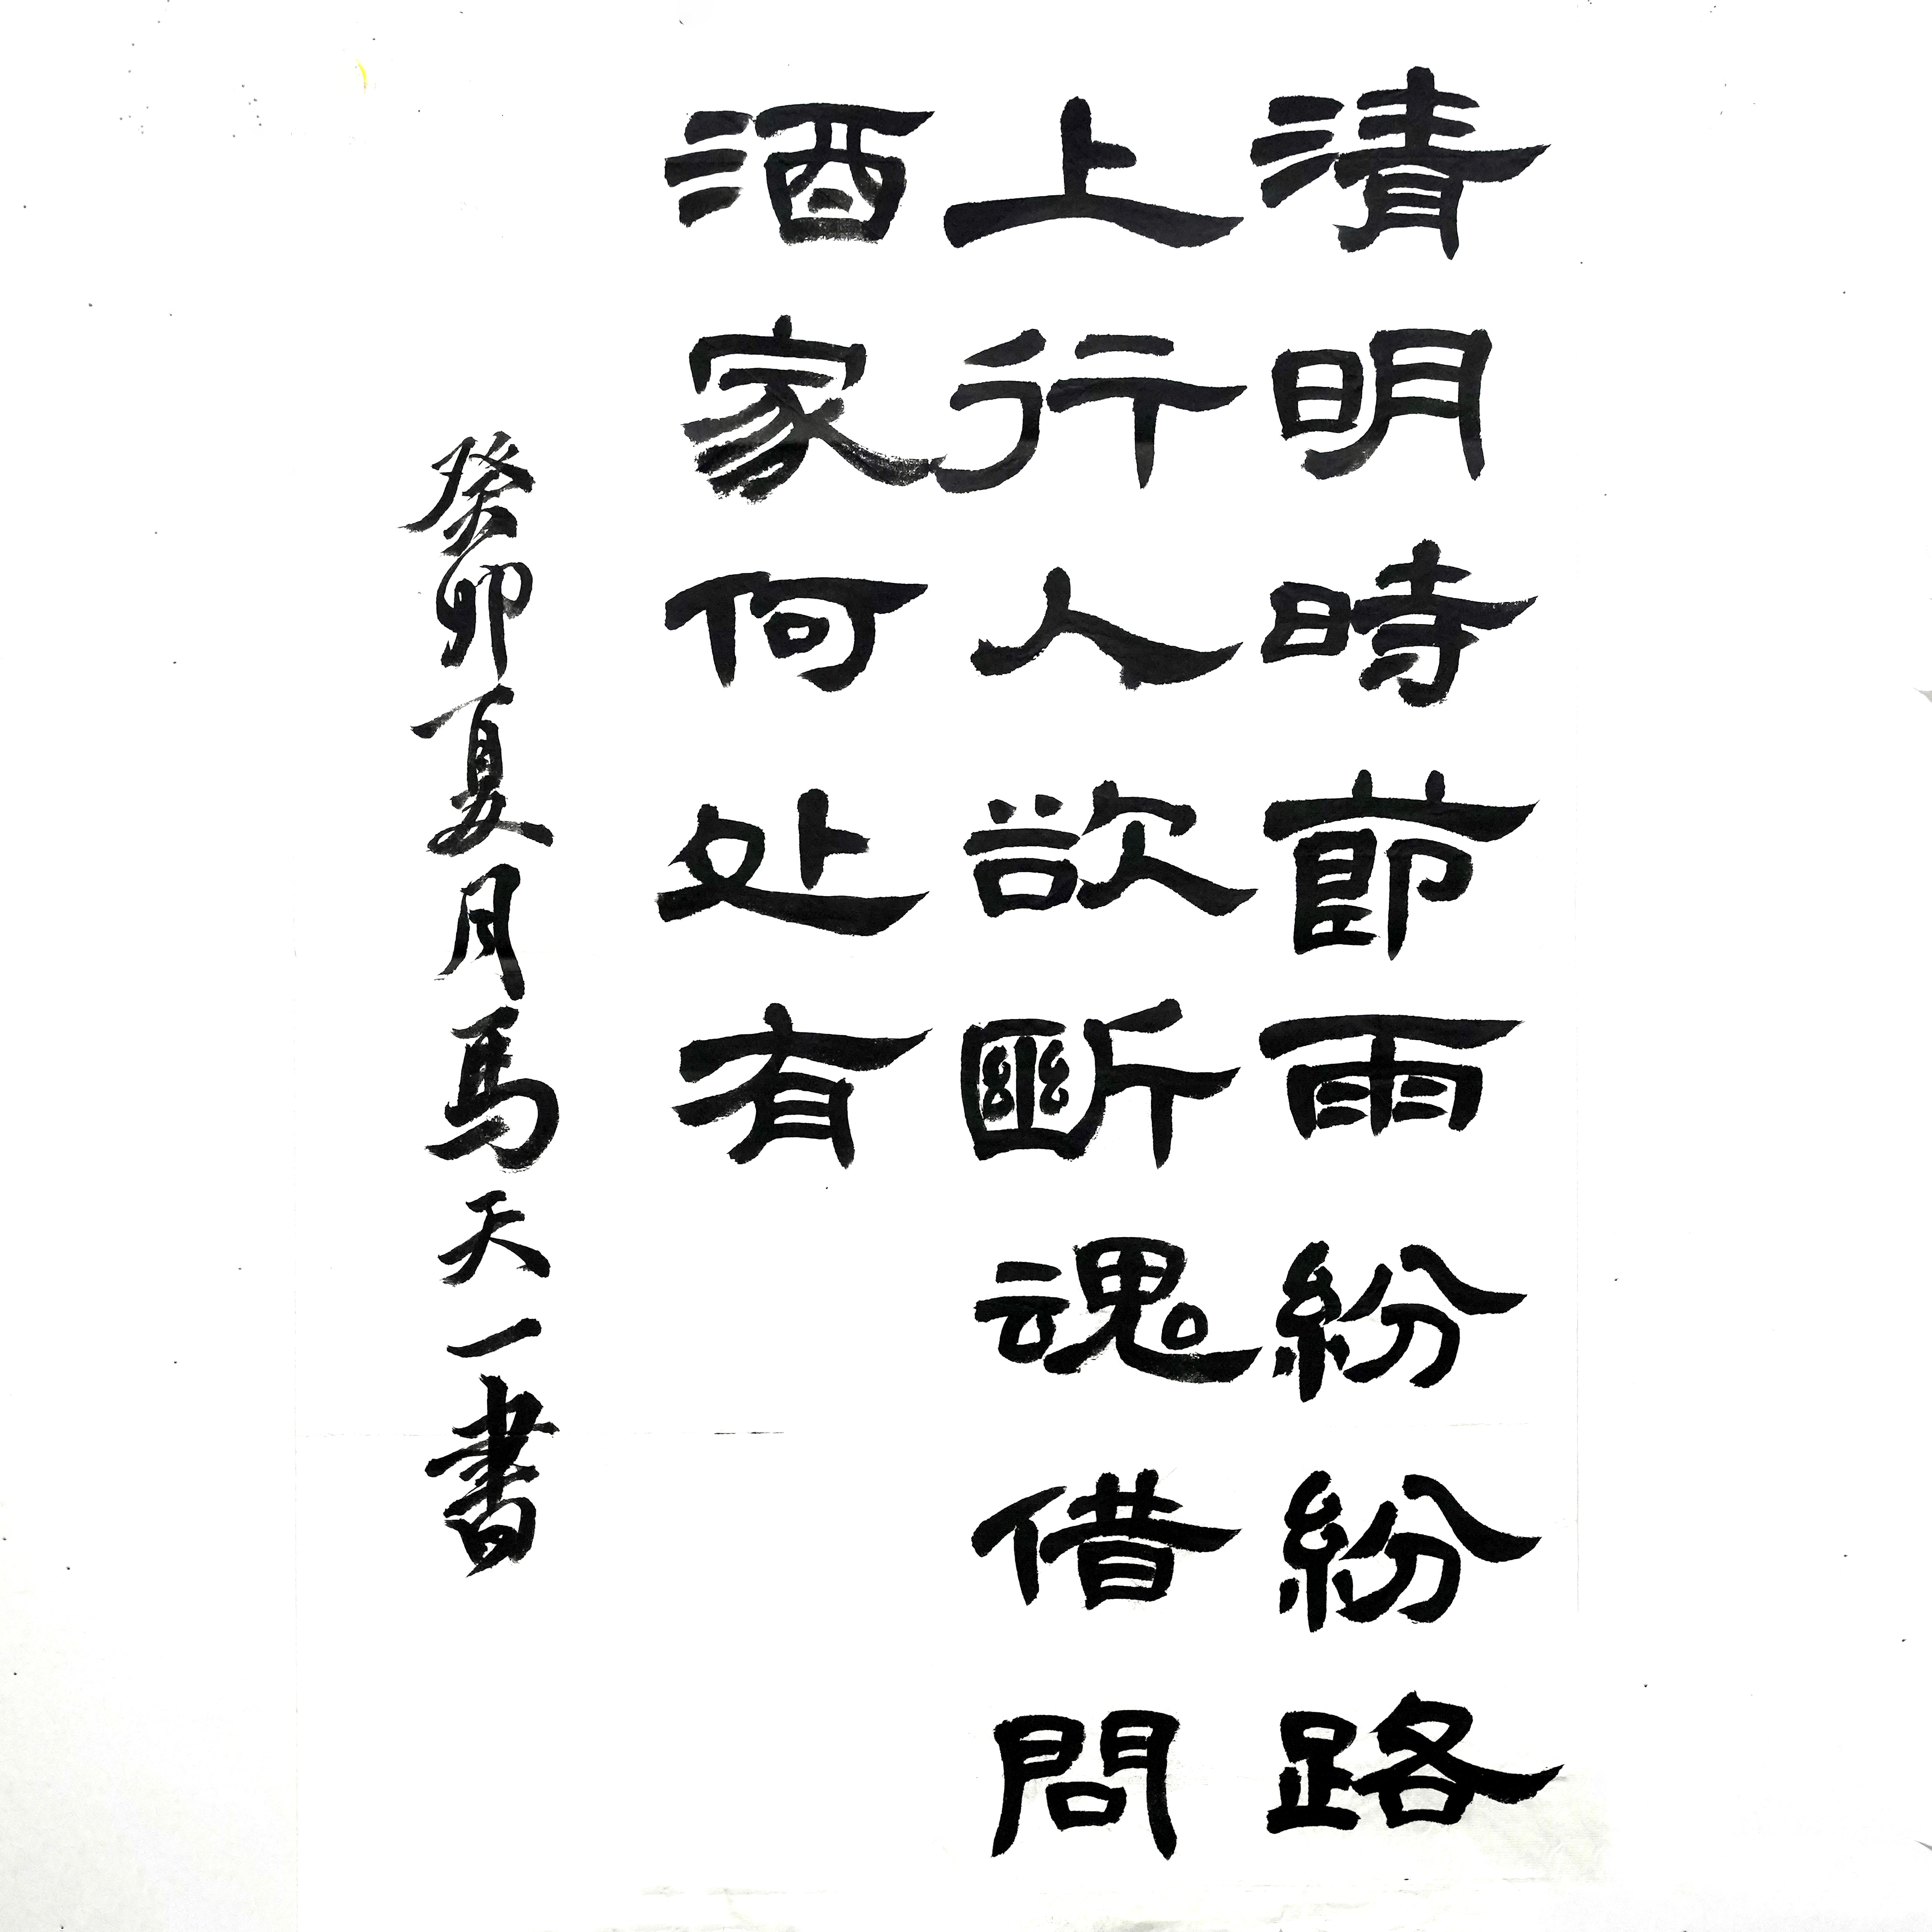 清明時節雨紛紛路
上行人欲斷魂借問
酒家何处有
癸卯夏月馬天一書